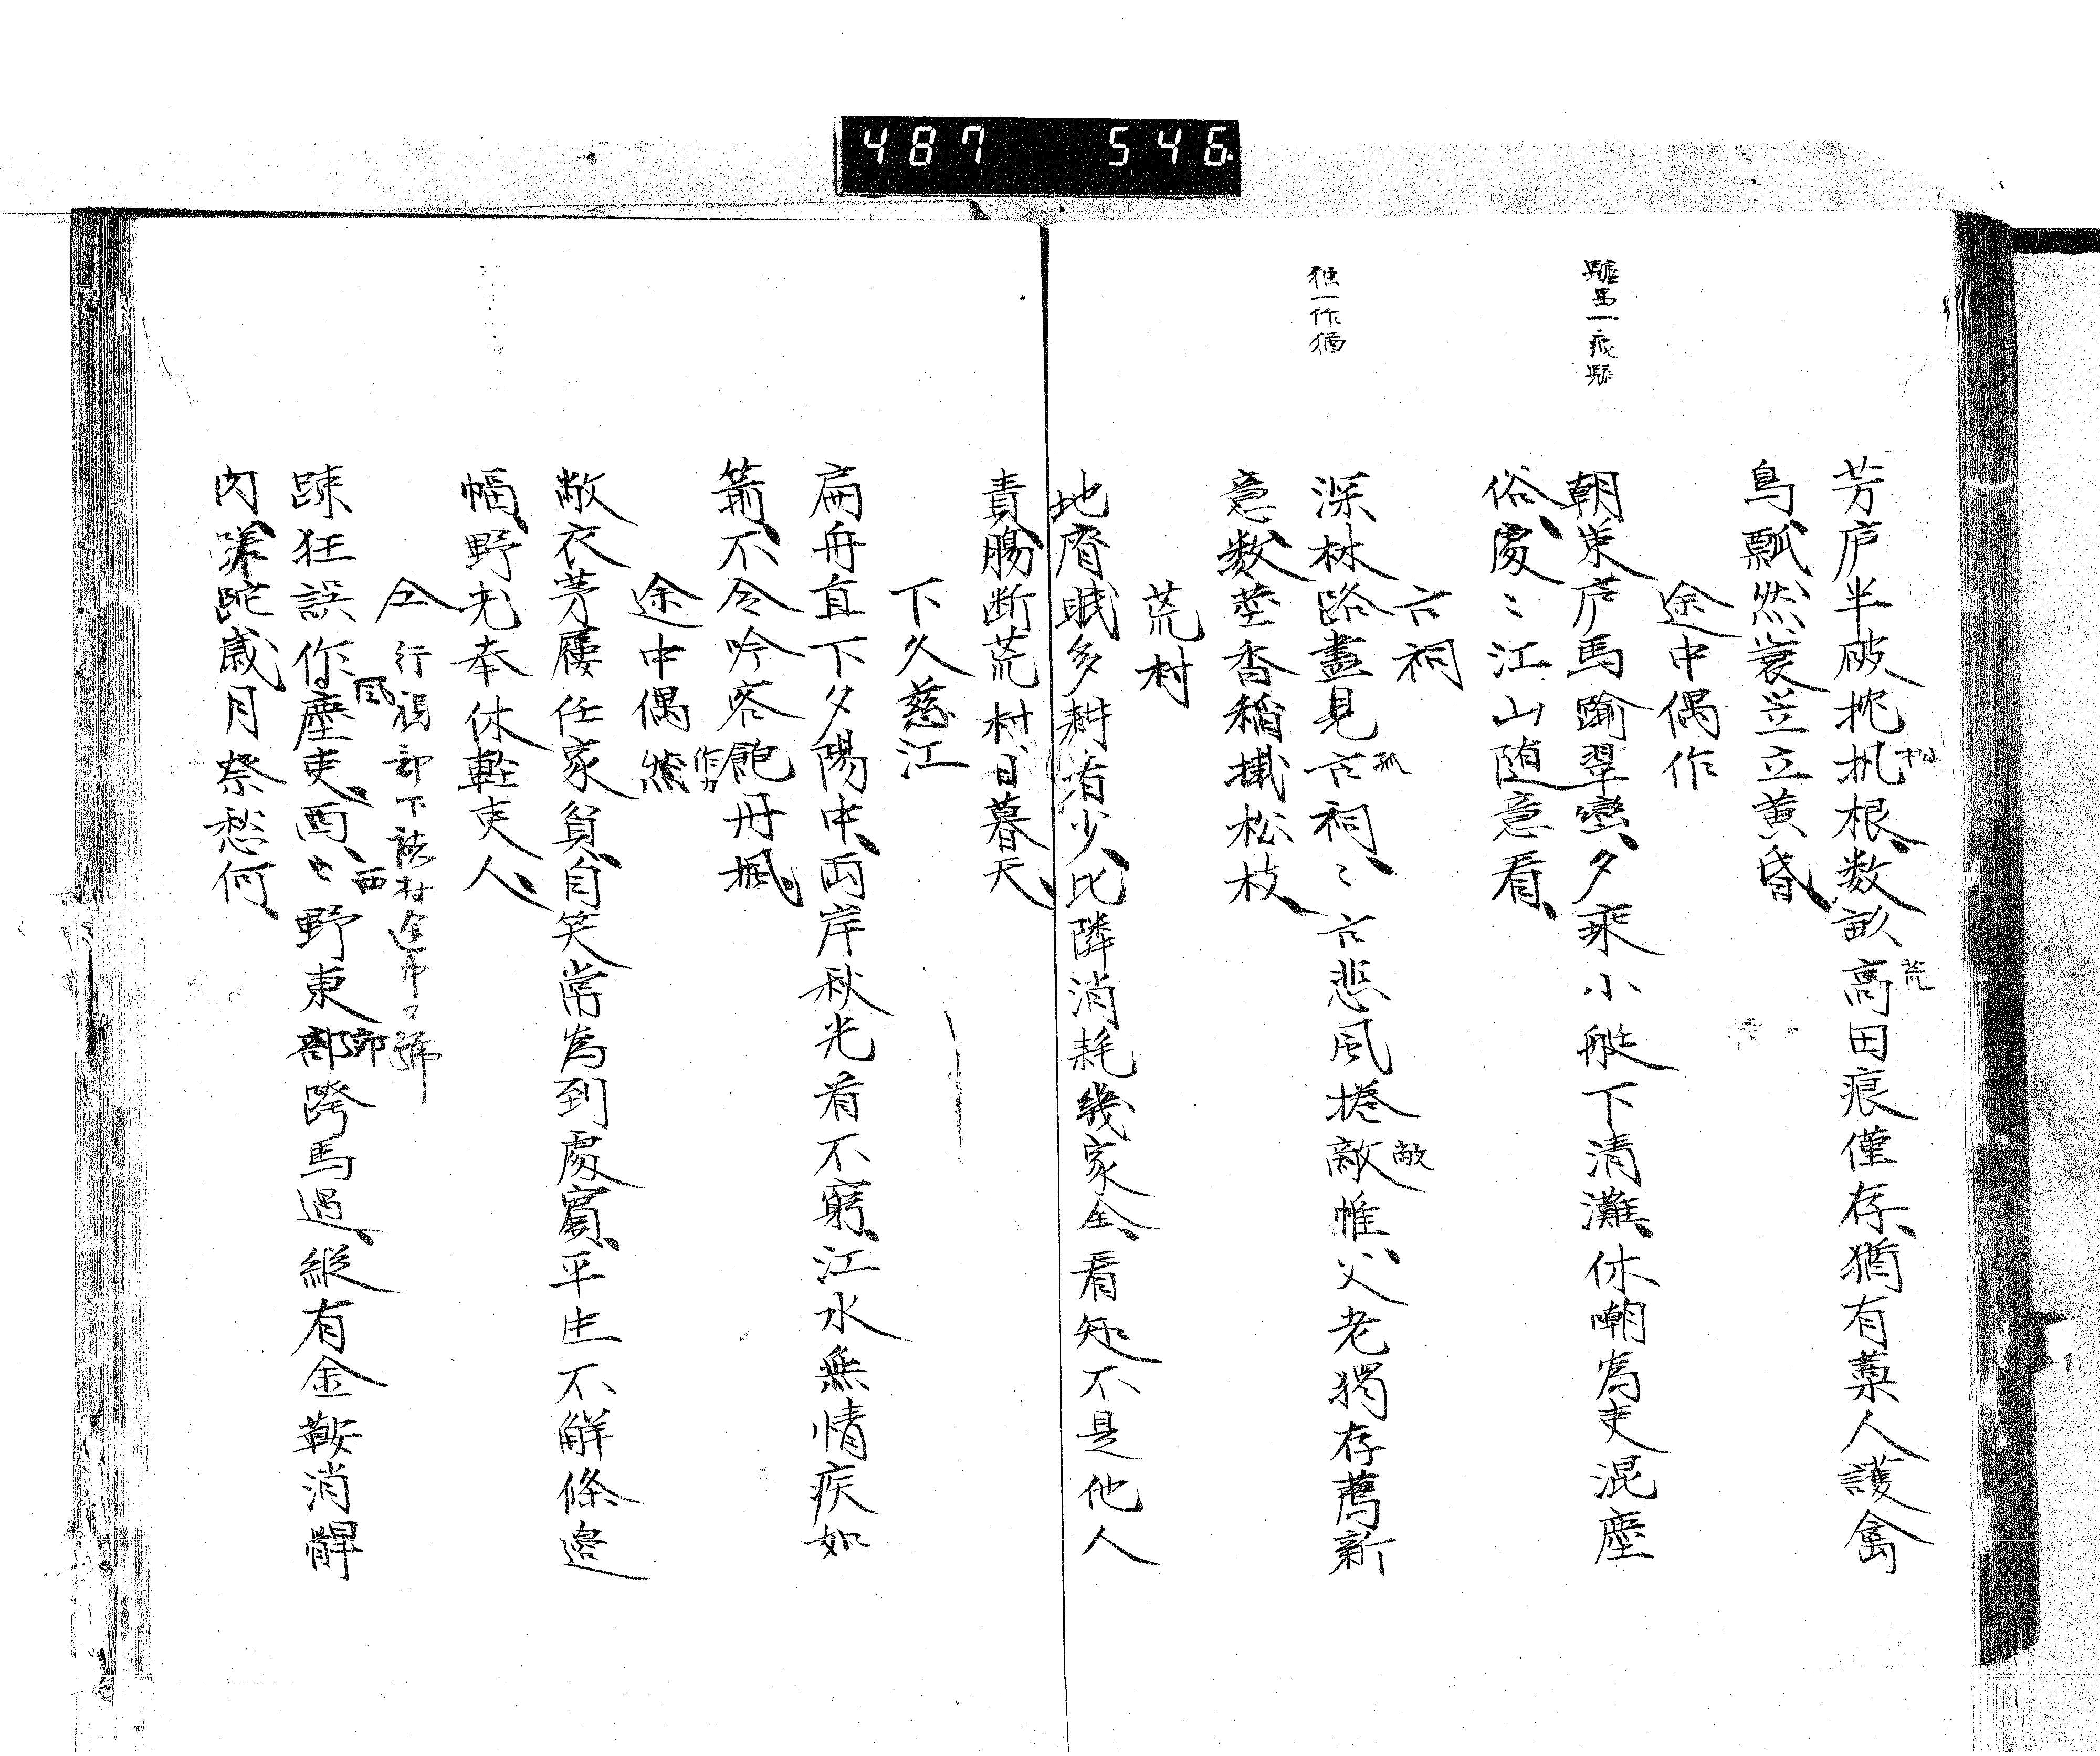 487 546
芳庐半破枕机根、数畝高田痕僅存、猶有藁人護禽
松
荒
鳥、飄然蓑笠立黄昏、
途中偶作
驢馬一疲驢
朝策庐馬踰翠巒、夕乘小艇下清灘、休嘲為吏混塵
俗、處〻江山随意看、
古祠
独一作猶
深林路盡見古祠、〻古悲風捲敵惟、父老獨存薦新
孤
敝
意、数莖香稲掛松枝、
荒村
地脊賊多耕者少、比隣消耗幾家全、看知不是他人
責、腸断荒村日暮天、
下久慈江
扁舟直下夕陽中、両岸秋光看不窮、江水無情疾如
箭、不令吟客飽丹楓、
途中偶然
作
敝衣芳屨任家貧、自笑常為到處賓、平生不解條邉
幅、野老奉休軽吏人、
仝行
部下
村途中口號
踈狂誤作塵吏、西〻野東部跨馬過、縦有金鞍消髀
風
西
郭
肉、蹉跎歳月祭愁何、